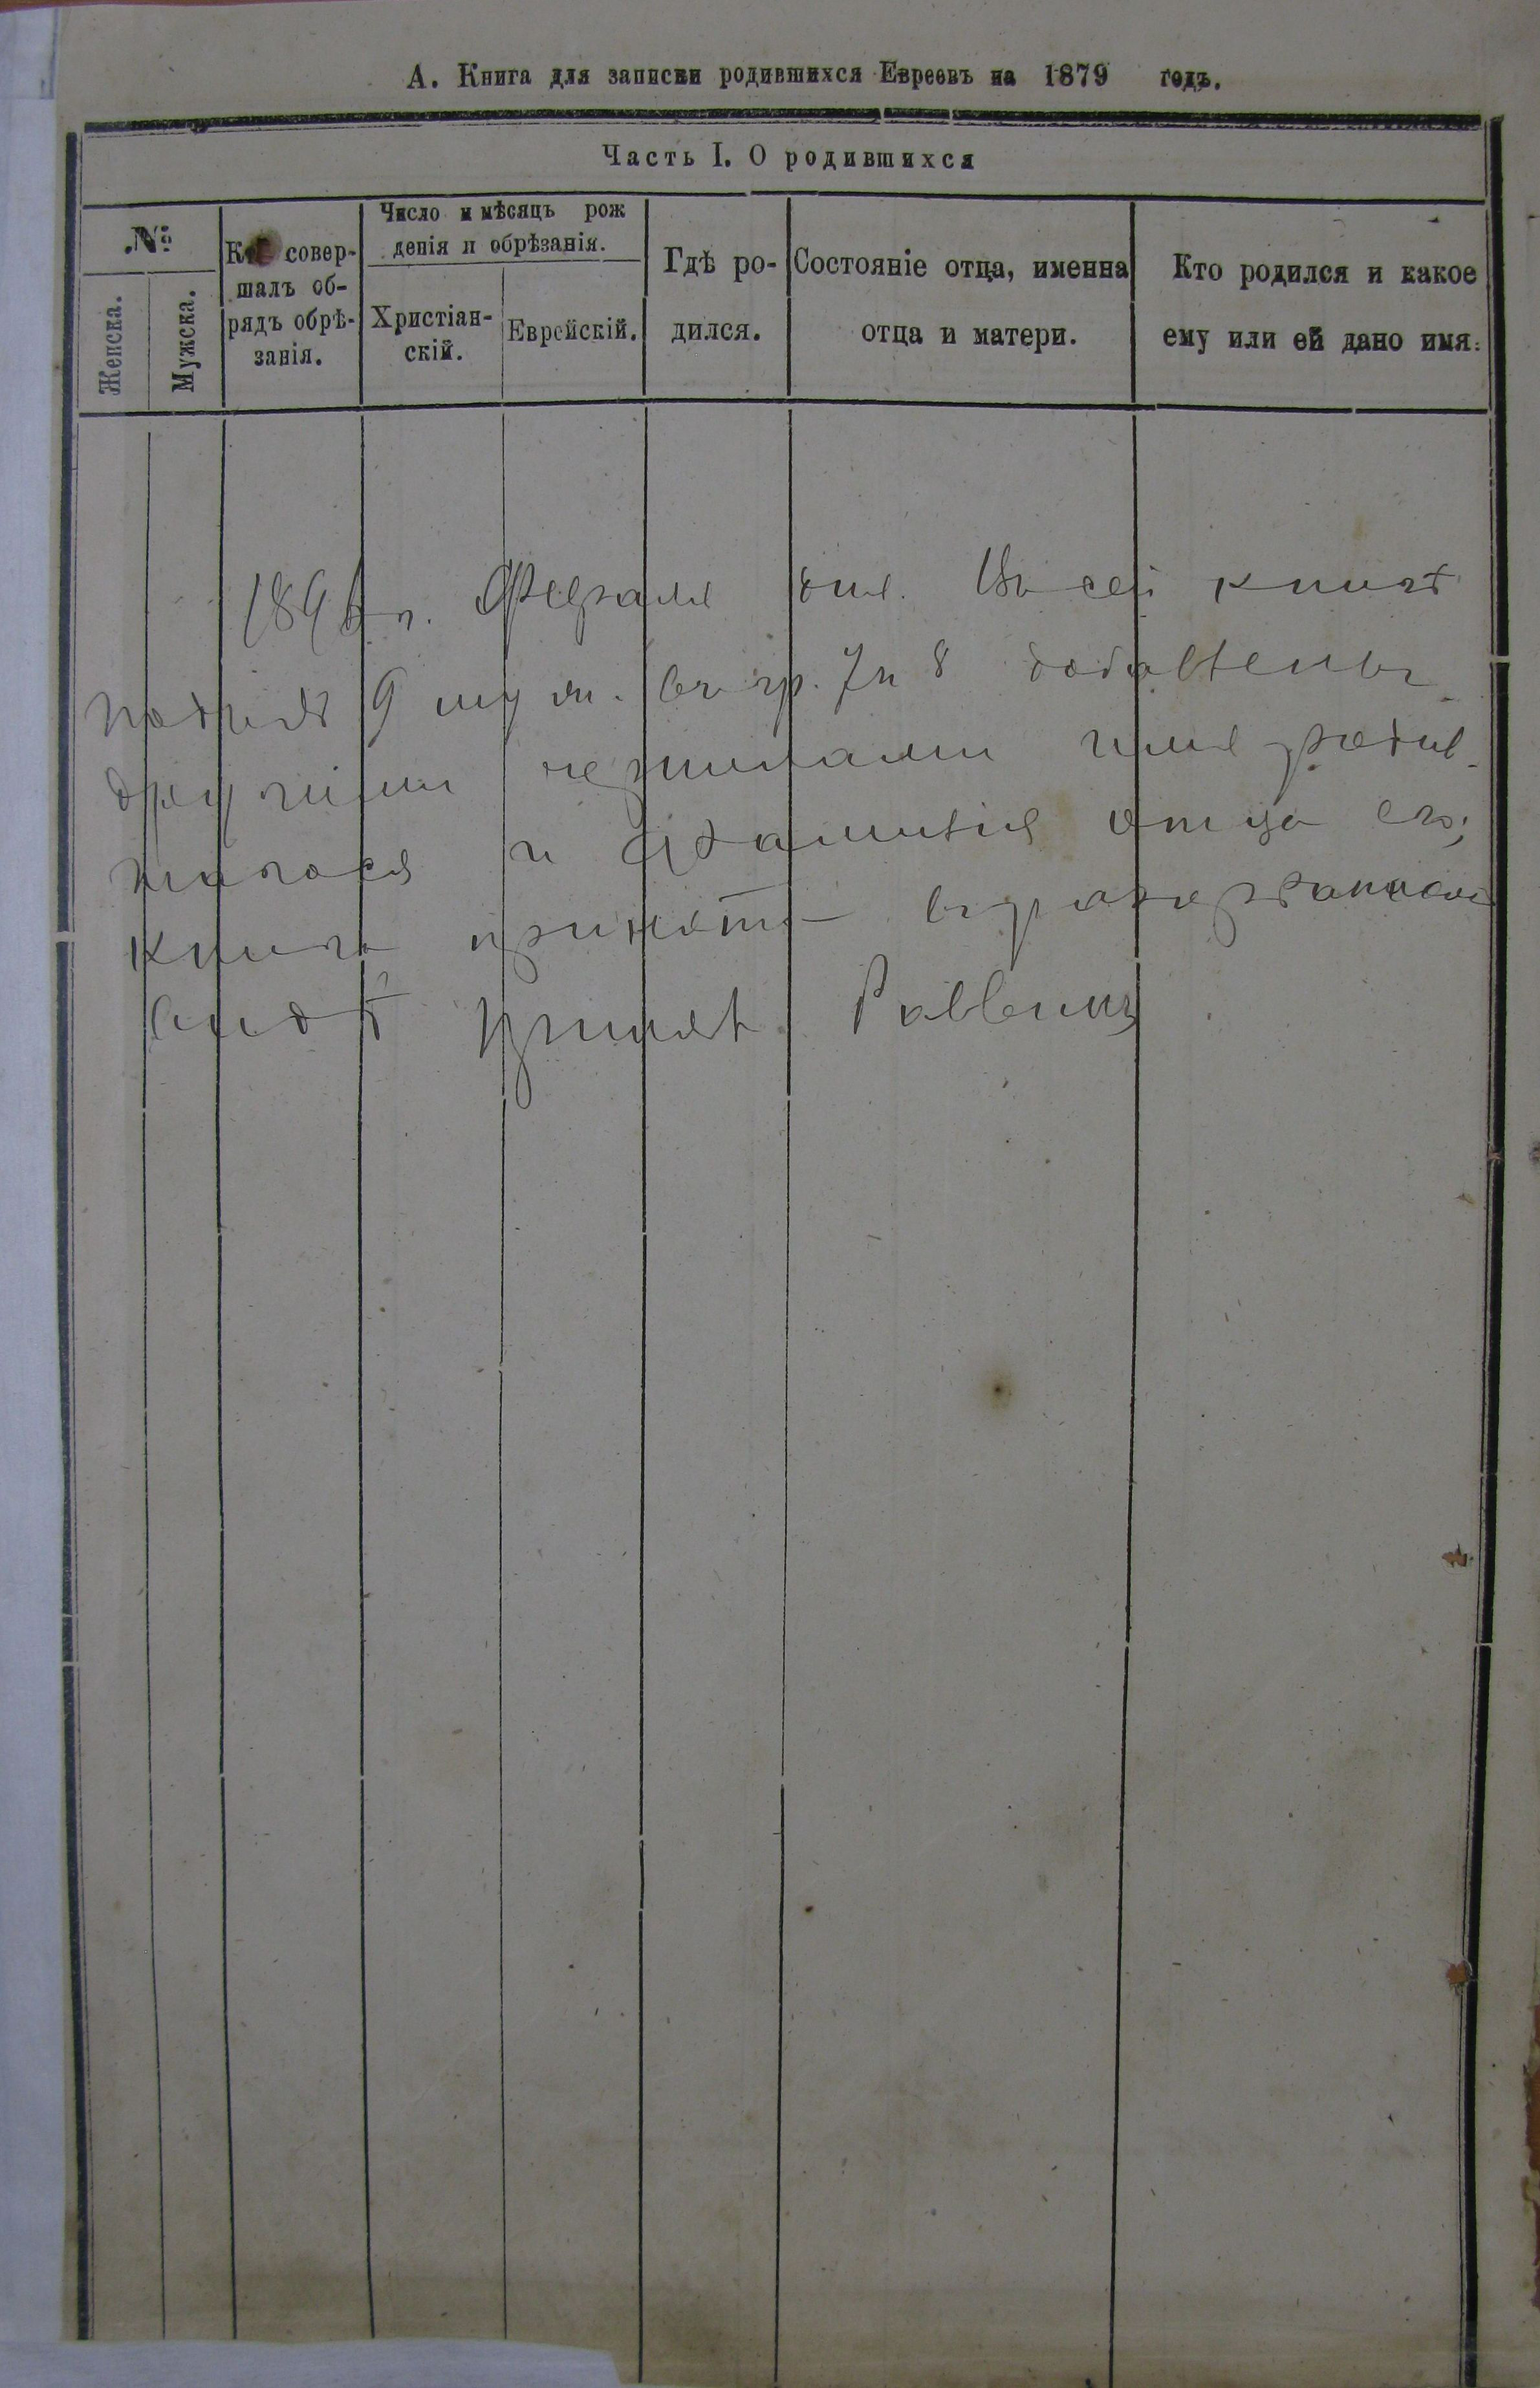 А. Книга для записки родившихся Евреевъ на 1879 годъ.
Часть I. О родившихся
№
Женска.
Мужска.
Кто совер-
шалъ об-
рядъ обрѣ-
занія.
Число и мѣсяцъ рож
денія и обрѣзанія.
Христіан-
скій.
Еврейскій.
Гдѣ ро-
дился.
Состояніе отца, именна
отца и матери.
Кто родился и какое
ему или ей дано имя.
1896 г. Февраля дня. Въ сей книгѣ
подъ № 9 муж. въ гр. 7 и 8 добавлены
другими чернилами имя родив-
шагося и фамилія отца его;
книга принята въ
видѣ Раввинъ